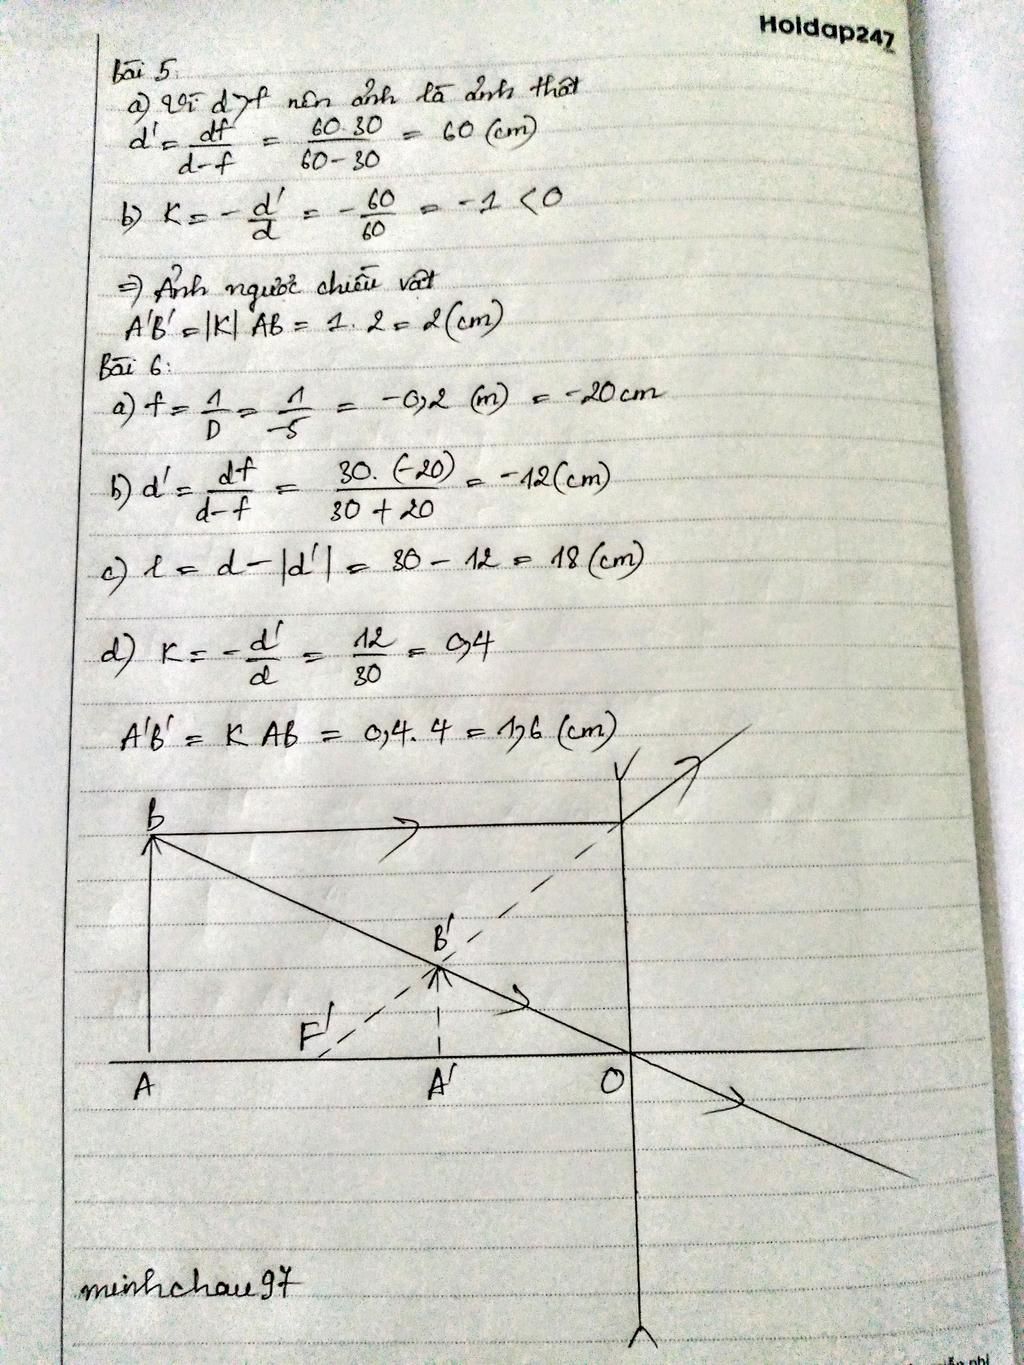 Holdap247
Bài 5:
a) Vì d>f nên ảnh là ảnh thật
d' = df/d-f = 60.30/60-30 = 60 (cm)
b) K = -d'/d = -60/60 = -1 < 0
=> Ảnh ngược chiều vật
A'B' = |K| AB = 1.2 = 2 (cm)
Bài 6:
a) f = 1/D = 1/-5 = -0,2 (m) = -20cm
b) d' = df/d-f = 30.(-20)/30+20 = -12 (cm)
c) l = d - |d'| = 30 - 12 = 18 (cm)
d) K = -d'/d = 12/30 = 0,4
A'B' = K AB = 0,4.4 = 1,6 (cm)
B
B'
F'
A A' O
minhchau97